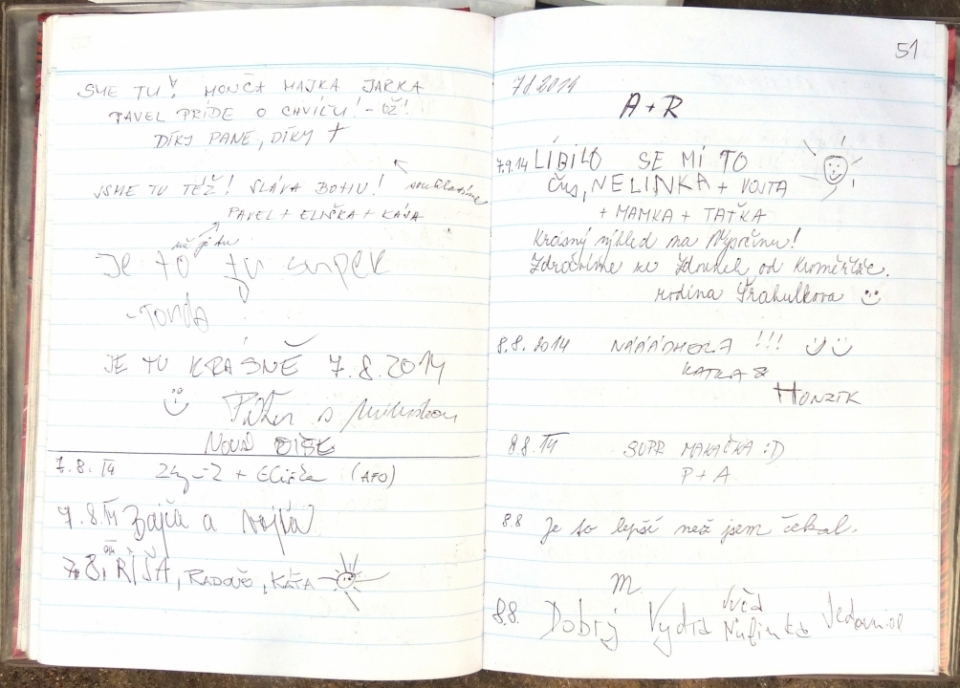 SME TU! MONČA MAJKA JARKA
PAVEL PŘIDE O CHVIĆU! - OŽ!
DÍKY PANE, DÍKY †
JSME TU TÉŽ! SLÁVA BOHU! souhlasíme
PAVEL + ELIŠKA + KÁJA
už je tu
Je to tu supr
- TONDA
JE TU KRÁSNĚ 7.8.2014
Peter s
NOVÁ
7.8.14 + Eliška (AFO)
7.8.14 Zajča a Vojta
7.8.14 RÍŠA, RADOUŠ, KÁŤA
51
7 8 2014
A + R
7.9.14 LÍBILO SE MI TO
Čus, NELINKA + VOJTA
+ MAMKA + TAŤKA
Krásný výhled na
Zdravíme ze Zdounek od Kroměříže.
rodina Trahulkova
8.8.2014 NÁÁÁDHERA !!!
KATKA &
HONZÍK
8.8.14 SUPR MAKAČKA :D
P + A
8.8 Je to lepší než jsem čekal.
M.
8.8. Dobrý Vydra